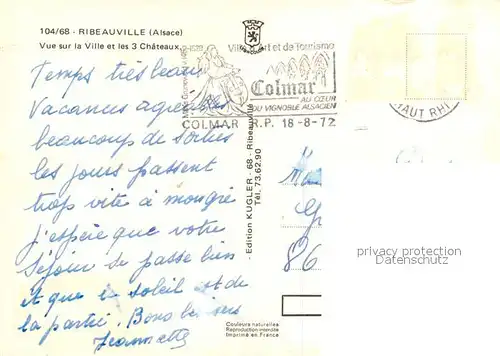 104/68 - RIBEAUVILLE (Alsace)
Vue sur la Ville et les 3 Châteaux
Ville d'Art et de Tourisme
Colmar
AU CŒUR
DU VIGNOBLE ALSACIEN
COLMAR R.P. 18-8-72
HAUT RHI
Temps très beau
Vacances agréables
beaucoup de sorties
les jours passent
trop vite à mon gré
j'espère que votre
séjour se passe bien
et que le soleil est de
la partie. Bons baisers
Jeannette
- Edition KUGLER - 68 - Ribeauvillé
Tél. 73.62.90
86
privacy protection
watermark
Couleurs naturelles
Reproduction interdite
Imprimé en France